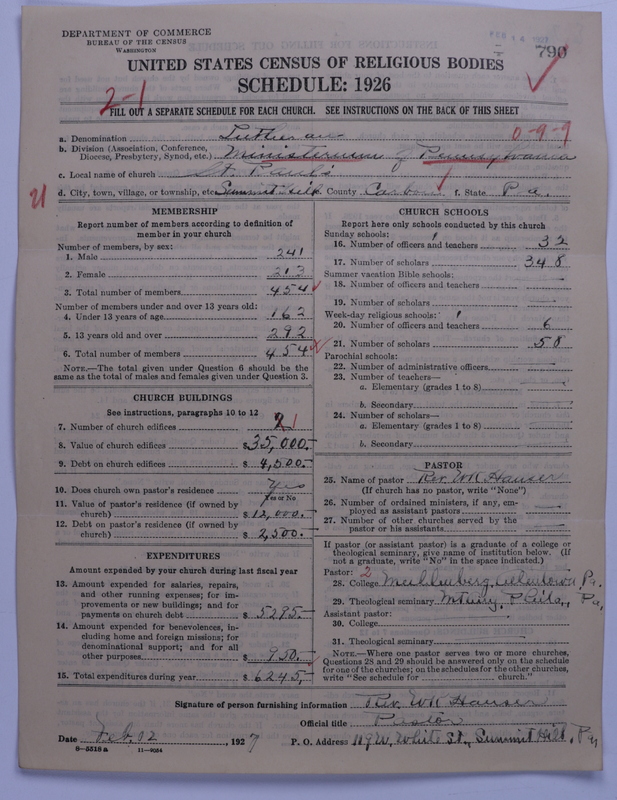 DEPARTMENT OF COMMERCE
BUREAU OF THE CENSUS
WASHINGTON
FEB 14 1927
790
UNITED STATES CENSUS OF RELIGIOUS BODIES
SCHEDULE: 1926
2-1
FILL OUT A SEPARATE SCHEDULE FOR EACH CHURCH. SEE INSTRUCTIONS ON THE BACK OF THIS SHEET
a. Denomination Lutheran 0-9-9
b. Division (Association, Conference, Diocese, Presbytery, Synod, etc.) Ministerium of Pennsylvania
c. Local name of church St. Paul's
d. City, town, village, or township, etc. Summit Hill e. County Carbon f. State Pa.
MEMBERSHIP
Report number of members according to definition of member in your church
Number of members, by sex:
1. Male 241
2. Female 213
3. Total number of members 454
Number of members under and over 13 years old:
4. Under 13 years of age 162
5. 13 years old and over 292
6. Total number of members 454
NOTE.—The total given under Question 6 should be the same as the total of males and females given under Question 3.
CHURCH BUILDINGS
See instructions, paragraphs 10 to 12
7. Number of church edifices 1
8. Value of church edifices $35,000.–
9. Debt on church edifices $4,500.–
10. Does church own pastor's residence Yes
Yes or No
11. Value of pastor's residence (if owned by church) $12,000.–
12. Debt on pastor's residence (if owned by church) $2,500.–
EXPENDITURES
Amount expended by your church during last fiscal year
13. Amount expended for salaries, repairs, and other running expenses; for improvements or new buildings; and for payments on church debt $5295.–
14. Amount expended for benevolences, including home and foreign missions; for denominational support; and for all other purposes $950.–
15. Total expenditures during year $6245.–
CHURCH SCHOOLS
Report here only schools conducted by this church
Sunday schools:
16. Number of officers and teachers 32
17. Number of scholars 348
Summer vacation Bible schools:
18. Number of officers and teachers
19. Number of scholars
Week-day religious schools:
20. Number of officers and teachers 6
21. Number of scholars 58
Parochial schools:
22. Number of administrative officers
23. Number of teachers—
a. Elementary (grades 1 to 8)
b. Secondary
24. Number of scholars—
a. Elementary (grades 1 to 8)
b. Secondary
PASTOR
25. Name of pastor Rev. WK Hauser
(If church has no pastor, write "None")
26. Number of ordained ministers, if any, employed as assistant pastors
27. Number of other churches served by the pastor or his assistants
If pastor (or assistant pastor) is a graduate of a college or theological seminary, give name of institution below. (If not a graduate, write "No" in the space indicated.)
Pastor: 2
28. College Muhlenberg, Allentown, Pa.
29. Theological seminary Mt Airy, Phila., Pa.
Assistant pastor:
30. College
31. Theological seminary
NOTE.—Where one pastor serves two or more churches, Questions 28 and 29 should be answered only on the schedule for one of the churches; on the schedules for the other churches, write "See schedule for church."
Signature of person furnishing information Rev. WK Hauser
Official title Pastor
Date Feb. 12, 1927 P. O. Address 119 W. White St., Summit Hill, Pa.
8—5518 a 11—9054